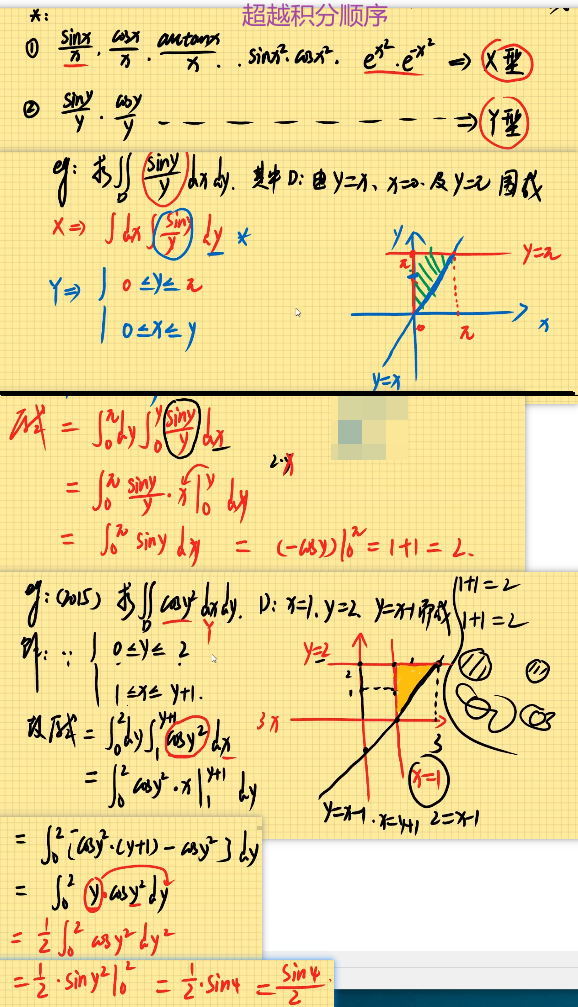 超越积分顺序
*:
① sinx/x · cosx/x · arctanx/x · sinx² · cosx² · e^{x²} · e^{-x²} ⇒ X型
② siny/y · cosy/y — — — — — — — ⇒ Y型
eg: 求∬_D siny/y dxdy. 其中D: 由y=x、x=0 及 y=π 围成
X⇒ ∫dx∫ siny/y dy *
Y⇒ { 0≤y≤π
0≤x≤y
y
π
y=π
0
π
x
y=x
原式 = ∫_0^π dy ∫_0^y siny/y dx
= ∫_0^π siny/y · x |_0^y dy
= ∫_0^π siny dy = (-cosy)|_0^π = 1+1 = 2.
eg: (2015) 求∬_D cosy² dxdy. D: x=1, y=2 y=x-1 所成
Y
1+1=2
1+1=2
解: ∵ { 0≤y≤2
1≤x≤y+1.
y=2
2
1
3
x=1
y=x-1 · x=y+1 2=x-1
故原式 = ∫_0^2 dy ∫_1^{y+1} cosy² dx
= ∫_0^2 cosy² · x |_1^{y+1} dy
= ∫_0^2 [cosy²·(y+1) - cosy²] dy
= ∫_0^2 y·cosy² dy
= 1/2 ∫_0^2 cosy² dy²
= 1/2 · siny² |_0^2 = 1/2 · sin4 = sin4/2.